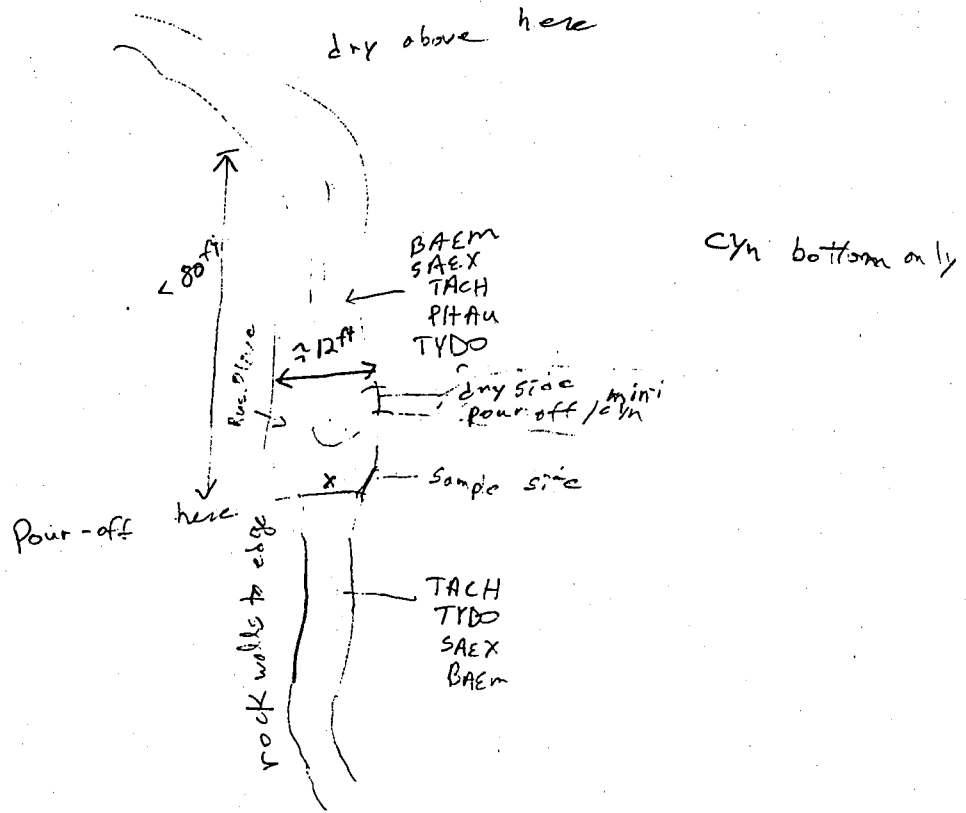 dry above here
< 80 ft.
BAEM
SAEX
TACH
PHAU
TYDO
Cyn bottom only
≈ 12 ft
Rus. Olive
dry side
mini
pour off / cyn
x
Sample site
Pour-off here
rock walls to edge
TACH
TYDO
SAEX
BAEM